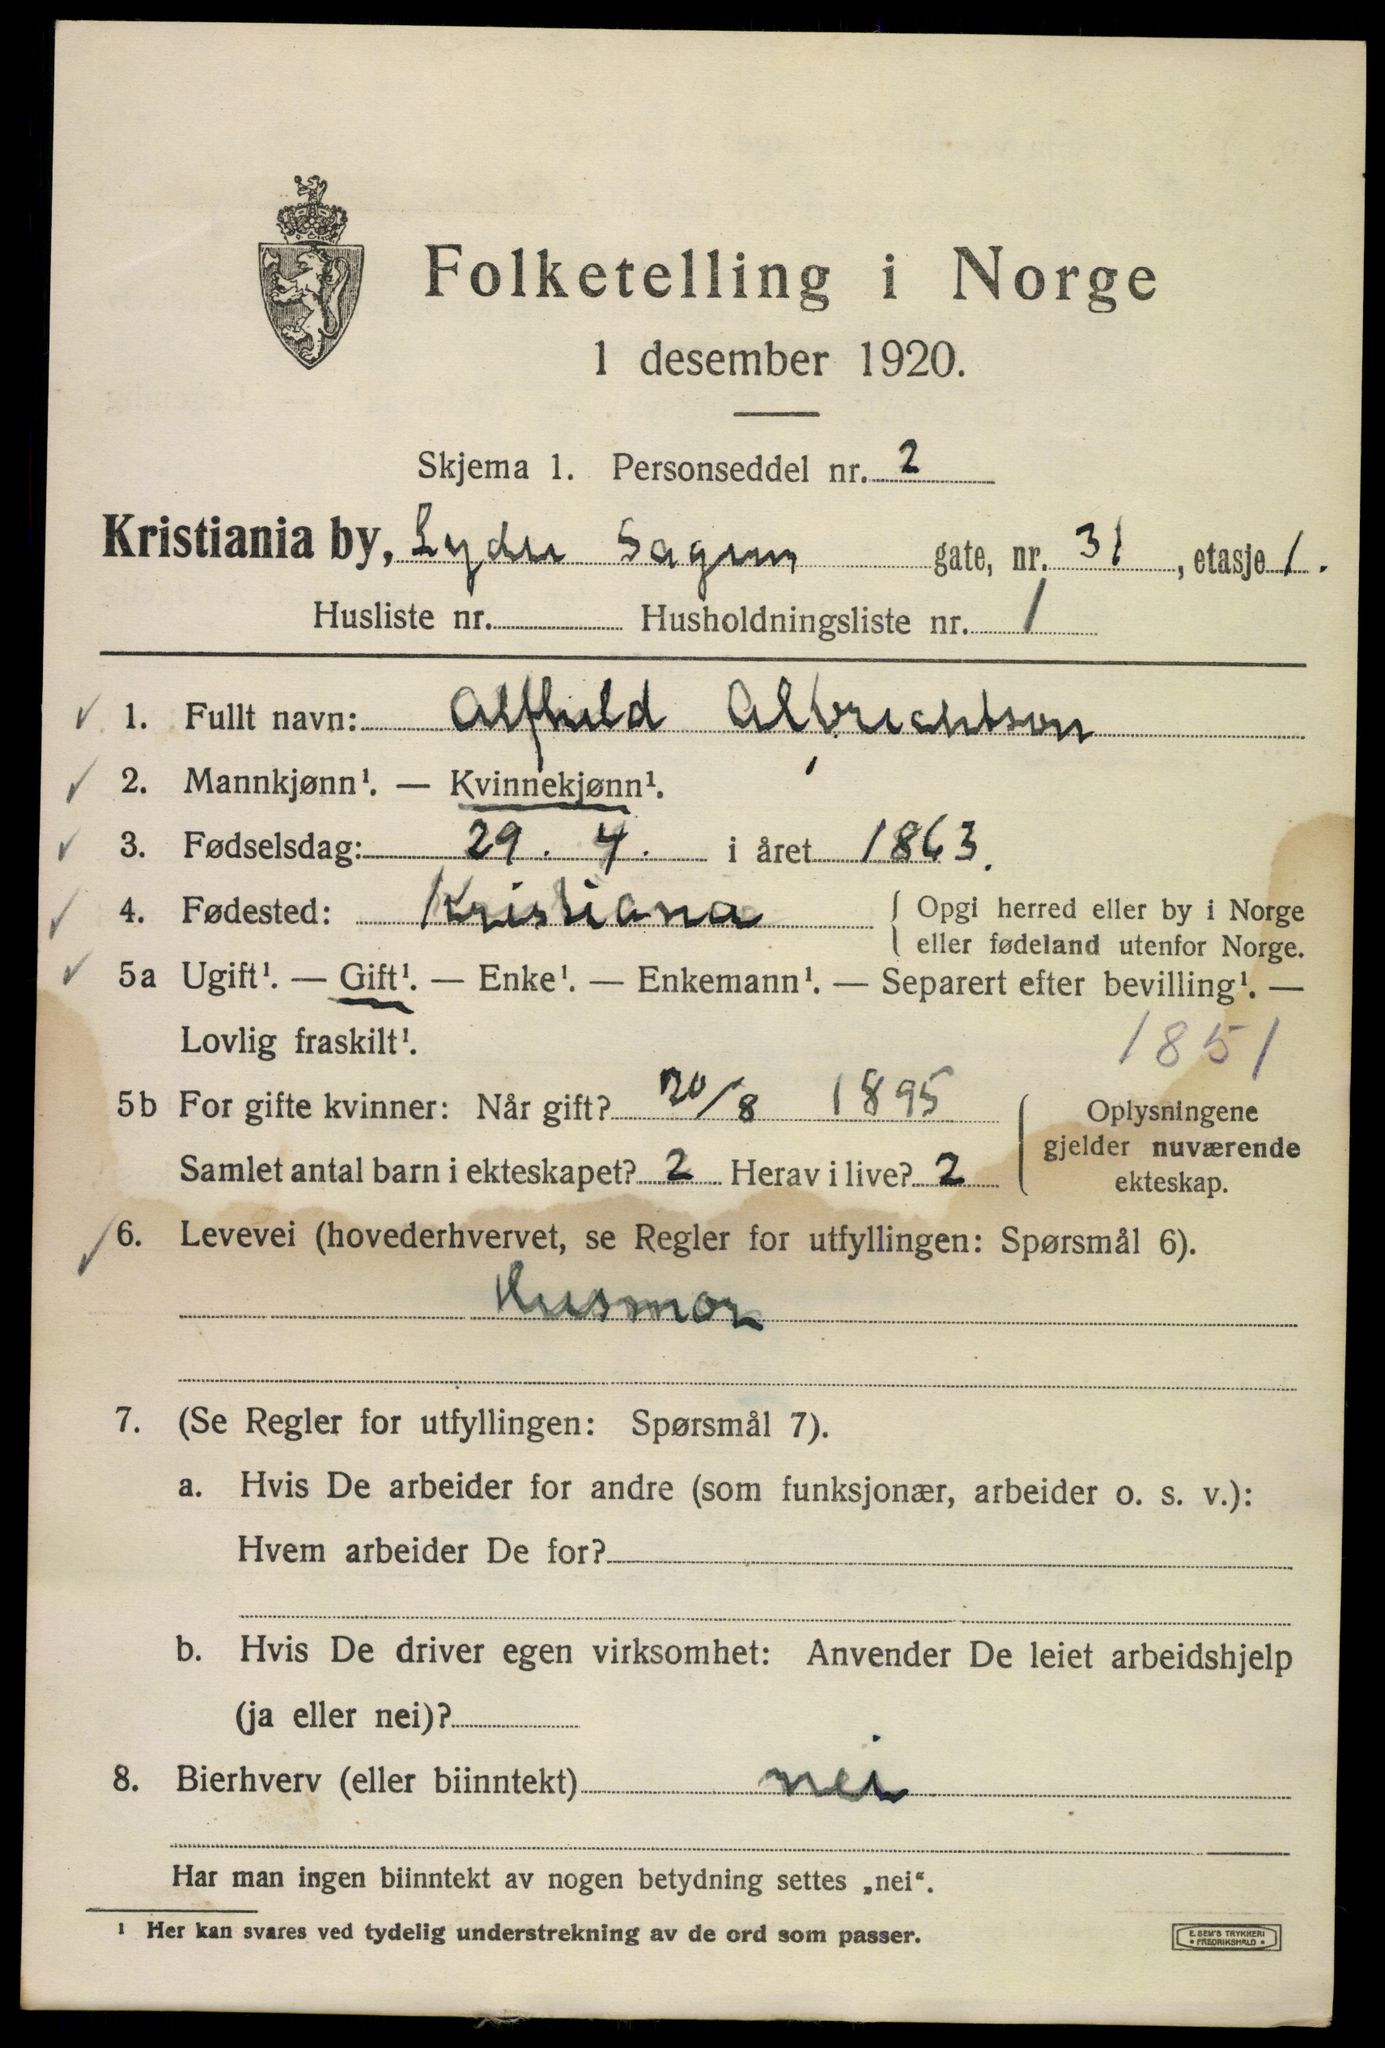 Folketelling i Norge
1 desember 1920.
Skjema 1. Personseddel nr. 2
Kristiania by, Lyder Sagens gate, nr. 31, etasje 1.
Husliste nr. Husholdningsliste nr. 1
1. Fullt navn: Alfhild Albrechtson
2. Mannkjønn¹. — Kvinnekjønn¹.
3. Fødselsdag: 29. 4. i året 1863.
4. Fødested: Kristiana { Opgi herred eller by i Norge
eller fødeland utenfor Norge.
5a Ugift¹. — Gift¹. — Enke¹. — Enkemann¹. — Separert efter bevilling¹. —
Lovlig fraskilt¹.
1851
5b For gifte kvinner: Når gift? 20/8 1895
Samlet antal barn i ekteskapet? 2 Herav i live? 2
Oplysningene
gjelder nuværende
ekteskap.
6. Levevei (hovederhvervet, se Regler for utfyllingen: Spørsmål 6).
Husmor
7. (Se Regler for utfyllingen: Spørsmål 7).
a. Hvis De arbeider for andre (som funksjonær, arbeider o. s. v.):
Hvem arbeider De for?
b. Hvis De driver egen virksomhet: Anvender De leiet arbeidshjelp
(ja eller nei)?
8. Bierhverv (eller biinntekt) nei
Har man ingen biinntekt av nogen betydning settes „nei“.
¹ Her kan svares ved tydelig understrekning av de ord som passer.
E. SEM'S TRYKKERI
* FREDRIKSHALD *